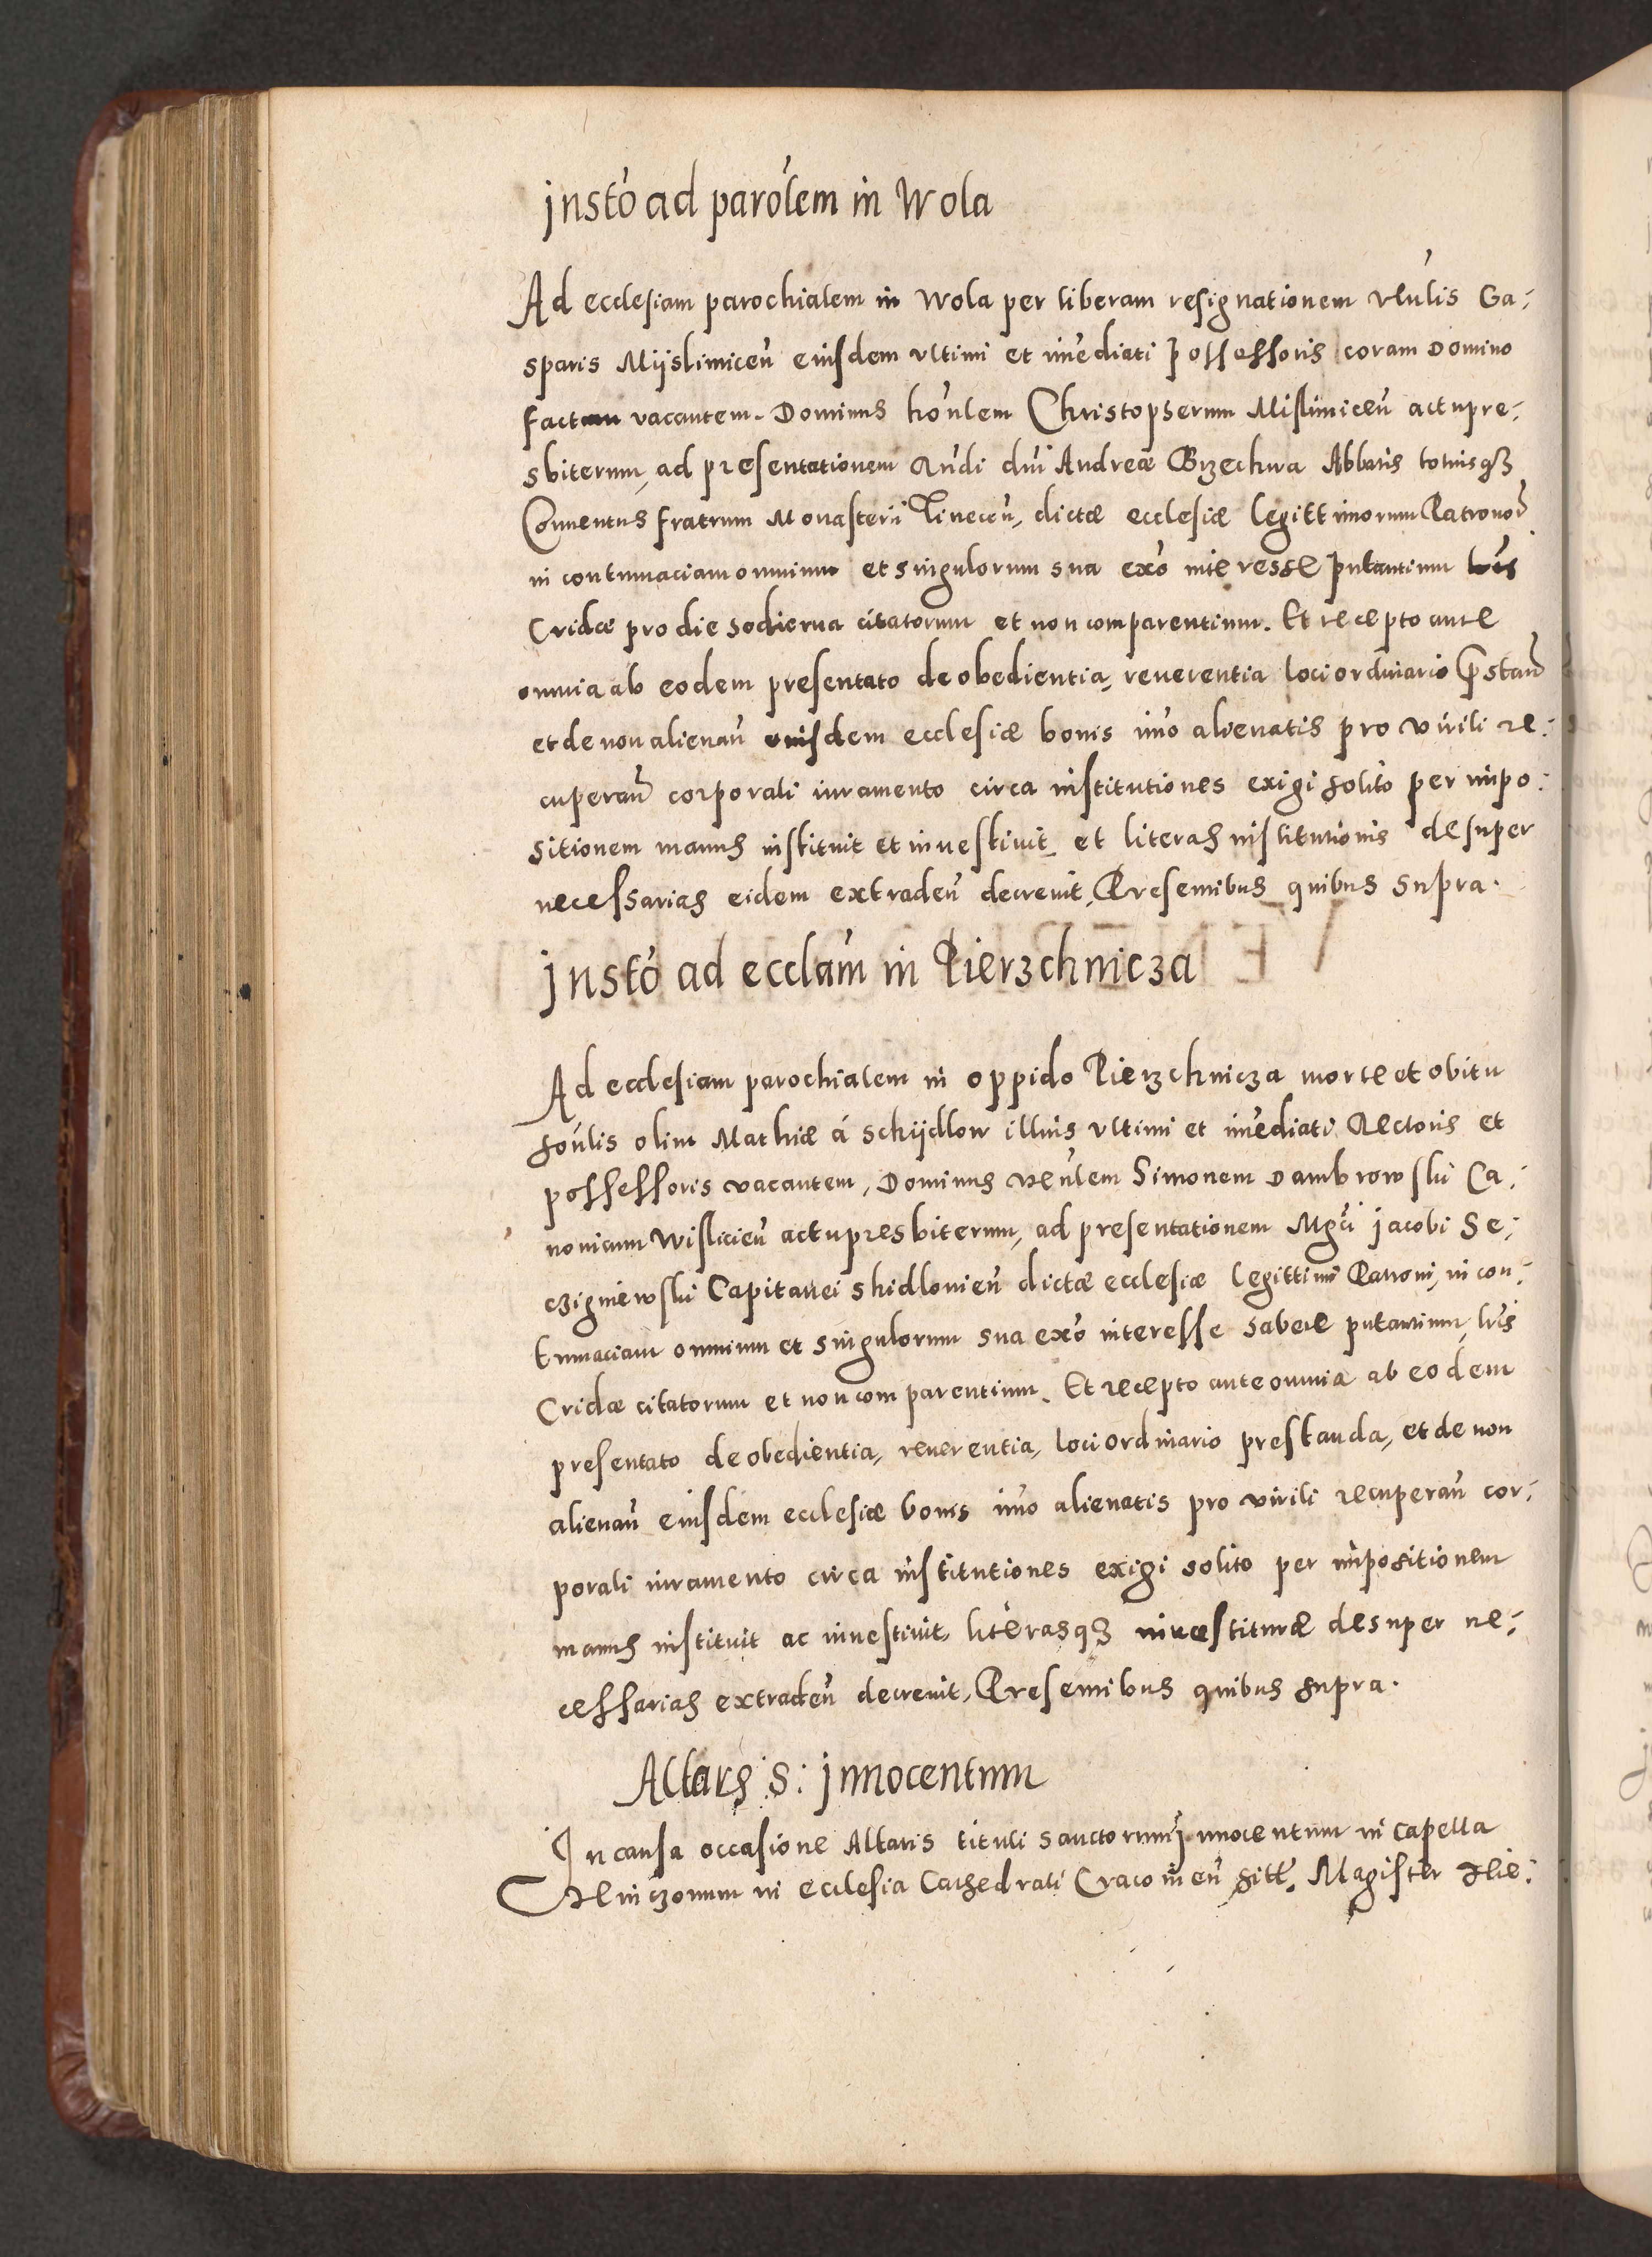 Insto ad parolem in Wola
Ad ecclesiam parochialem in Wola per liberam resignationem vlulis Ga-
sparis Mijslimiceń eiusdem vltimi et imediati possessoris coram Domino
factam vacantem. Dominus honlem Christopherum Mislimiceń actupre-
sbiterum, ad presentationem Rndi dni Andreæ Brzechwa Abbatis totiusqȝ
Conuentus fratrum Monasterii Tineceń, dictæ ecclesiæ legittimorum Patronor̄
in contumaciam omnium et singulorum sua exo interesse putantium lris
Cridæ pro die hodierna citatorum et non comparentium. Et recepto ante
omnia ab eodem presentato de obedientia, reuerentia loci ordinario p̄stań
et de non alienań eiusdem ecclesiæ bonis imo alienatis pro virili re-
cuperań corporali iuramento circa institutiones exigi solito per impo-
sitionem manus instituit et inuestiuit et literas institutionis desuper
necessarias eidem extradeń decreuit, Presentibus quibus supra.
Insto ad ecclam in Pierzchnicza
Ad ecclesiam parochialem in oppido Pierzchnicza morte et obitu
honlis olim Mathiæ á Schijdlow illius vltimi et imediati Rectoris et
possessoris vacantem, Dominus venlem Simonem Dambrowski Ca-
nonicum Wislicień actupresbiterum, ad presentationem Mgci Jacobi Se-
czigniewski Capitanei Shidlonień dictæ ecclesiæ legittimi Patroni, in con-
tumaciam omnium et singulorum sua exo interesse habere putantium, lris
Cridæ citatorum et non comparentium. Et recepto ante omnia ab eodem
presentato de obedientia, reuerentia, loci ordinario prestanda, et de non
alienań eiusdem ecclesiæ bonis imo alienatis pro virili recuperań cor-
porali iuramento circa institutiones exigi solito per impositionem
manus instituit ac inuestiuit, literasqȝ inuestituræ desuper ne-
cessarias extradeń decreuit, Presentibus quibus supra.
Altaris S: Innocentum
In causa occasione Altaris tituli sanctorum Innocentum in capella
in ecclesia Cathedrali Cracouień sitt. Magister Hie-